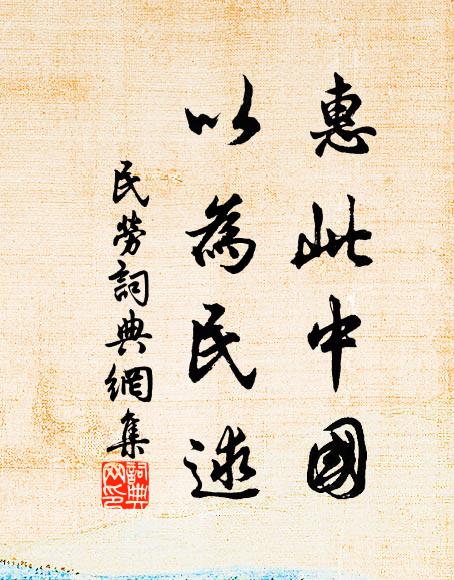 惠此中國
以為民逑
民勞詞典網集
詞典網印